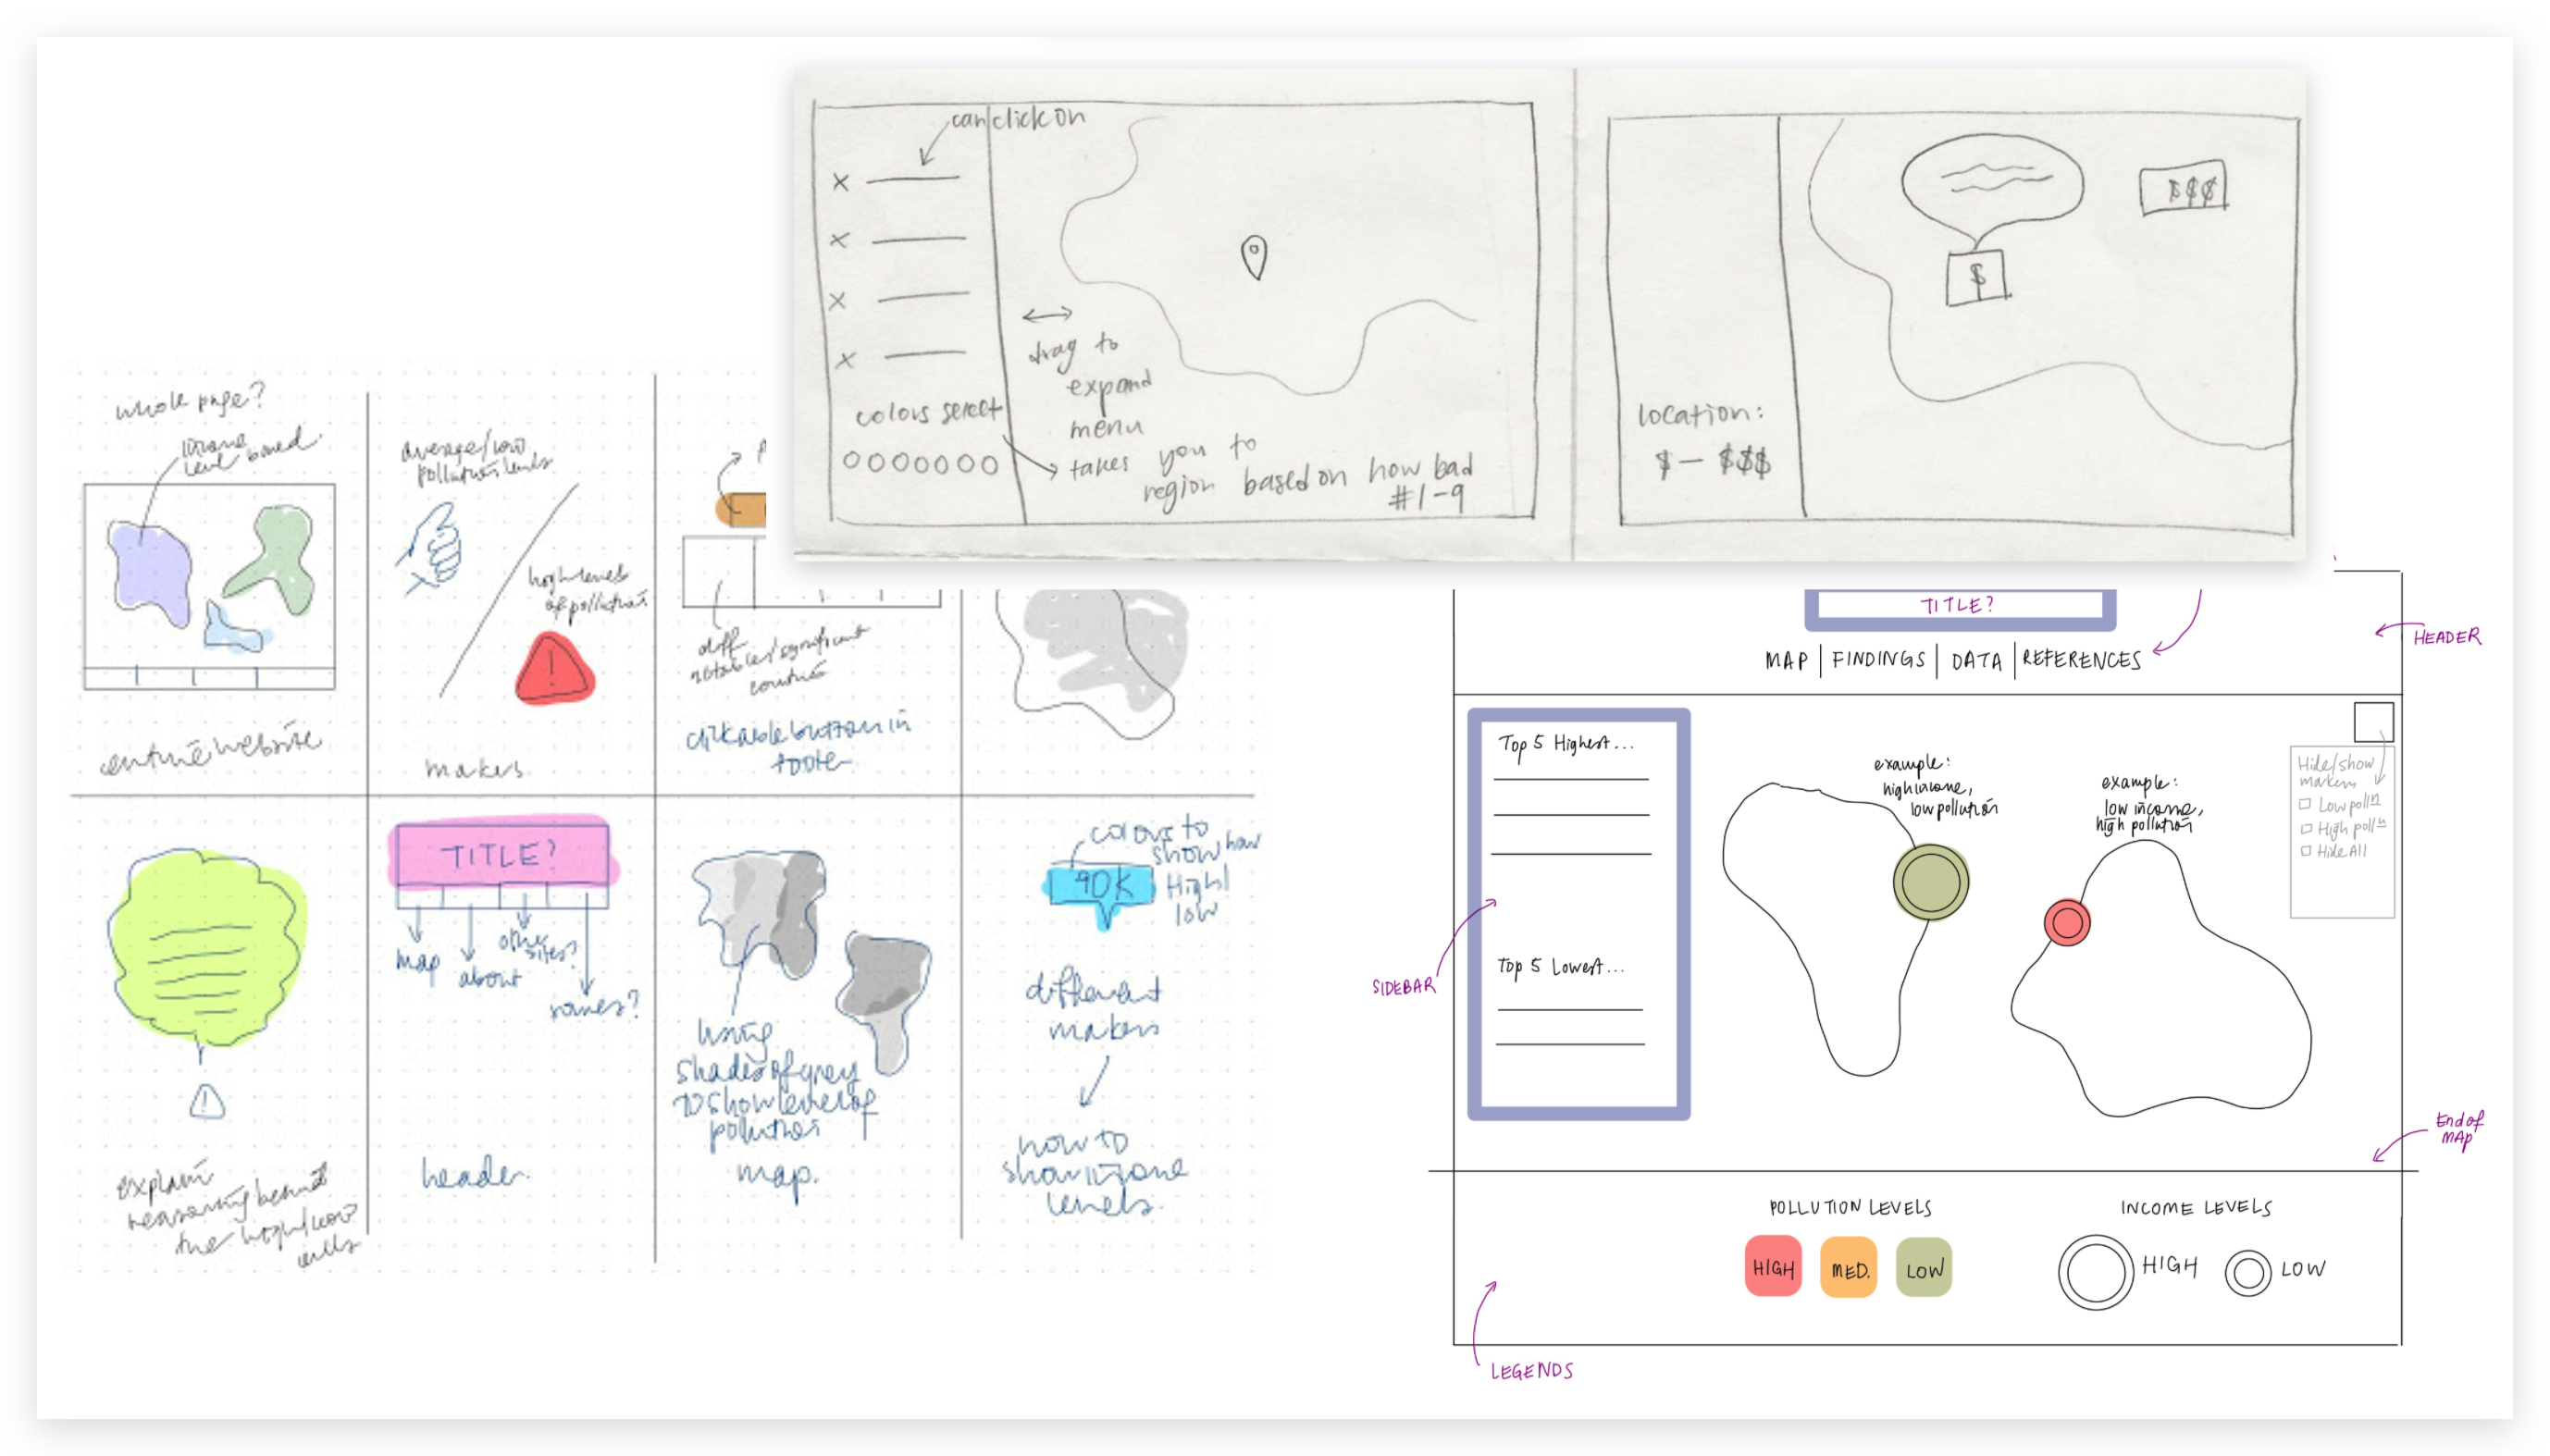 can click on
X
X
X
X
drag to
expand
menu
colors select
takes you to
region based on how bad
#1-9
$
$$$
location:
$ — $$$
whole page?
income
level based
entire website
average/low
pollution levels
high levels
of pollution
!
makers
diff
notable/significant
counties
clickable button in
footer
explain
reasoning behind
the high/low
!
TITLE?
map
about
other
sites?
header.
using
shades of grey
to show level of
pollution
map.
colours to
show how
High/
low
90K
different
makers
how to
show income
levels.
TITLE?
HEADER
MAP | FINDINGS | DATA | REFERENCES
Top 5 Highest...
Top 5 Lowest...
SIDEBAR
example:
high income,
low pollution
example:
low income,
high pollution
Hide/show
markers
Low poll'n
High poll'n
Hide All
End of
MAP
POLLUTION LEVELS
HIGH
MED.
LOW
INCOME LEVELS
HIGH
LOW
LEGENDS